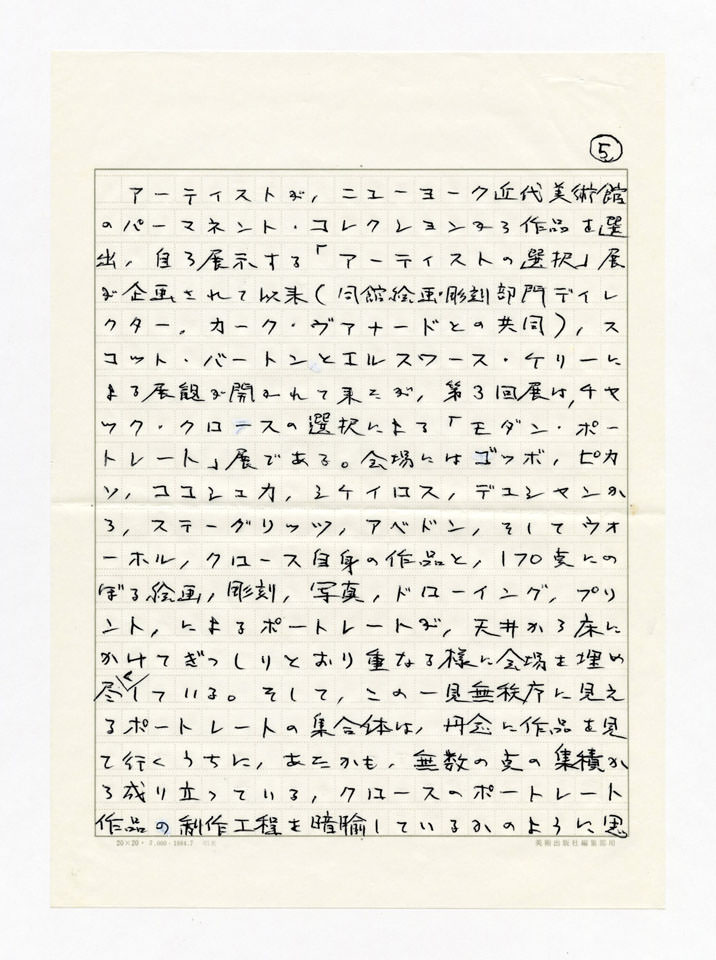 ⑤
アーティストが,ニューヨーク近代美術館
のパーマネント・コレクションから作品を選
出,自ら展示する「アーティストの選択」展
が企画されて以来(同館絵画・彫刻部門ディレ
クター,カーク・ヴァナードとの共同),ス
コット・バートンとエルスワース・ケリーに
よる展観が開かれて来たが,第3回展は,チャ
ック・クロースの選択による「モダン・ポー
トレート」展である。会場にはゴッホ,ピカ
ソ,ココシュカ,シケイロス,デュシャンか
ら,スティーグリッツ,アベドン,そしてウォ
ーホル,クロース自身の作品と,170点にの
ぼる絵画,彫刻,写真,ドローイング,プリ
ント,によるポートレートが,天井から床に
かけてぎっしりとおり重なる様に会場を埋め
尽くしている。そして,この一見無秩序に見え
るポートレートの集合体は,丹念に作品を見
て行くうちに,あたかも,無数の点の集積か
ら成り立っている,クロースのポートレート
作品の制作工程を暗喩しているかのように思
20×20・7,000・1984.7
美術出版社編集部用